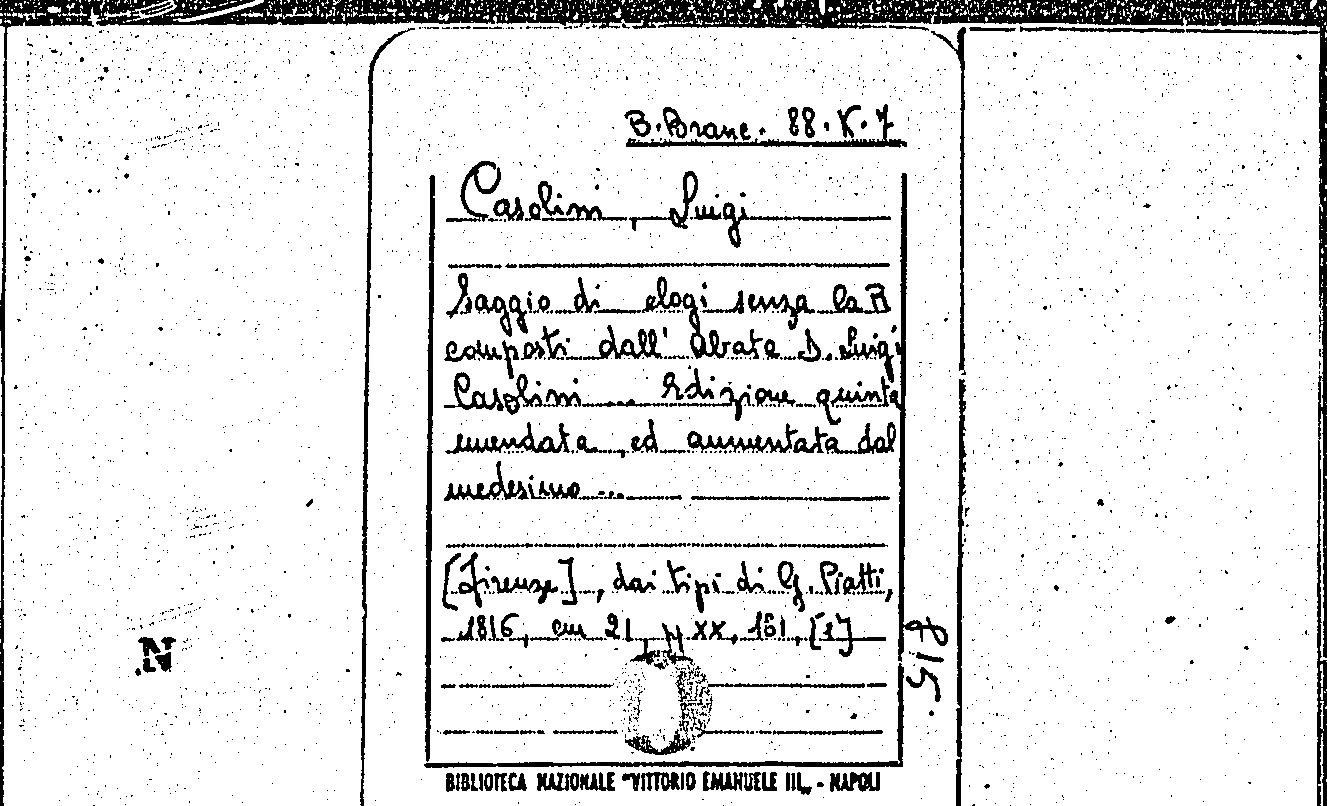 B. Branc. 88. K. 7
Casolini, Luigi
Saggio di elogi senza la R
composti dall' abate D. Luigi
Casolini ... Edizione quinta
emendata, ed aumentata dal
medesimo ...
[Firenze], dai tipi di G. Piatti,
1816, cm 21, p XX, 161, [1]
BIBLIOTECA NAZIONALE "VITTORIO EMANUELE III„ - NAPOLI